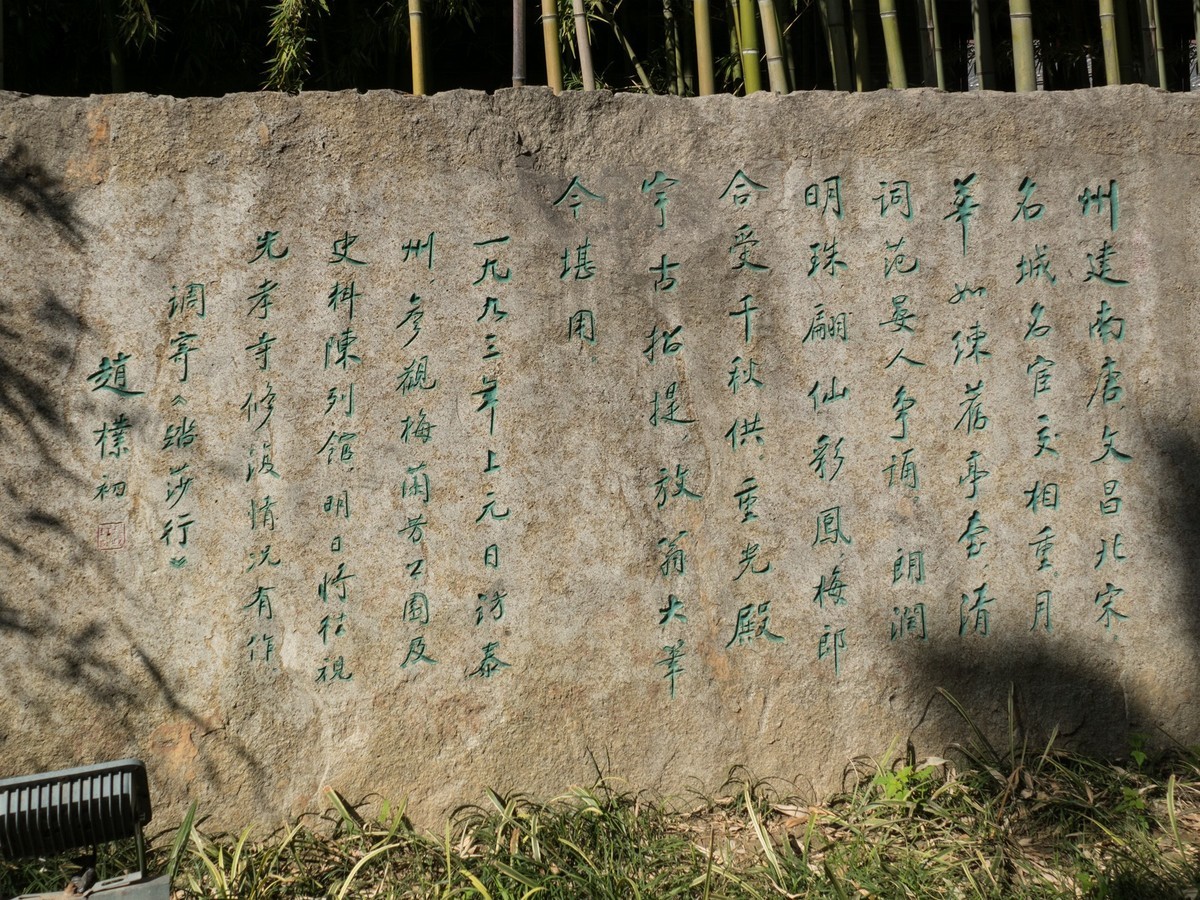 州建南唐，文昌北宋，
名城名宦交相重。月
華如練舊亭台，清
词范晏人争诵。朗润
明珠，翩仙彩鳳，梅郎
合受千秋供。重光殿
宇古招提，放翁大筆
今堪用。
一九九三年上元日訪泰
州，參觀梅蘭芳公園及
史料陳列館，明日将往視
光孝寺修復情况有作
調寄《踏莎行》
趙樸初